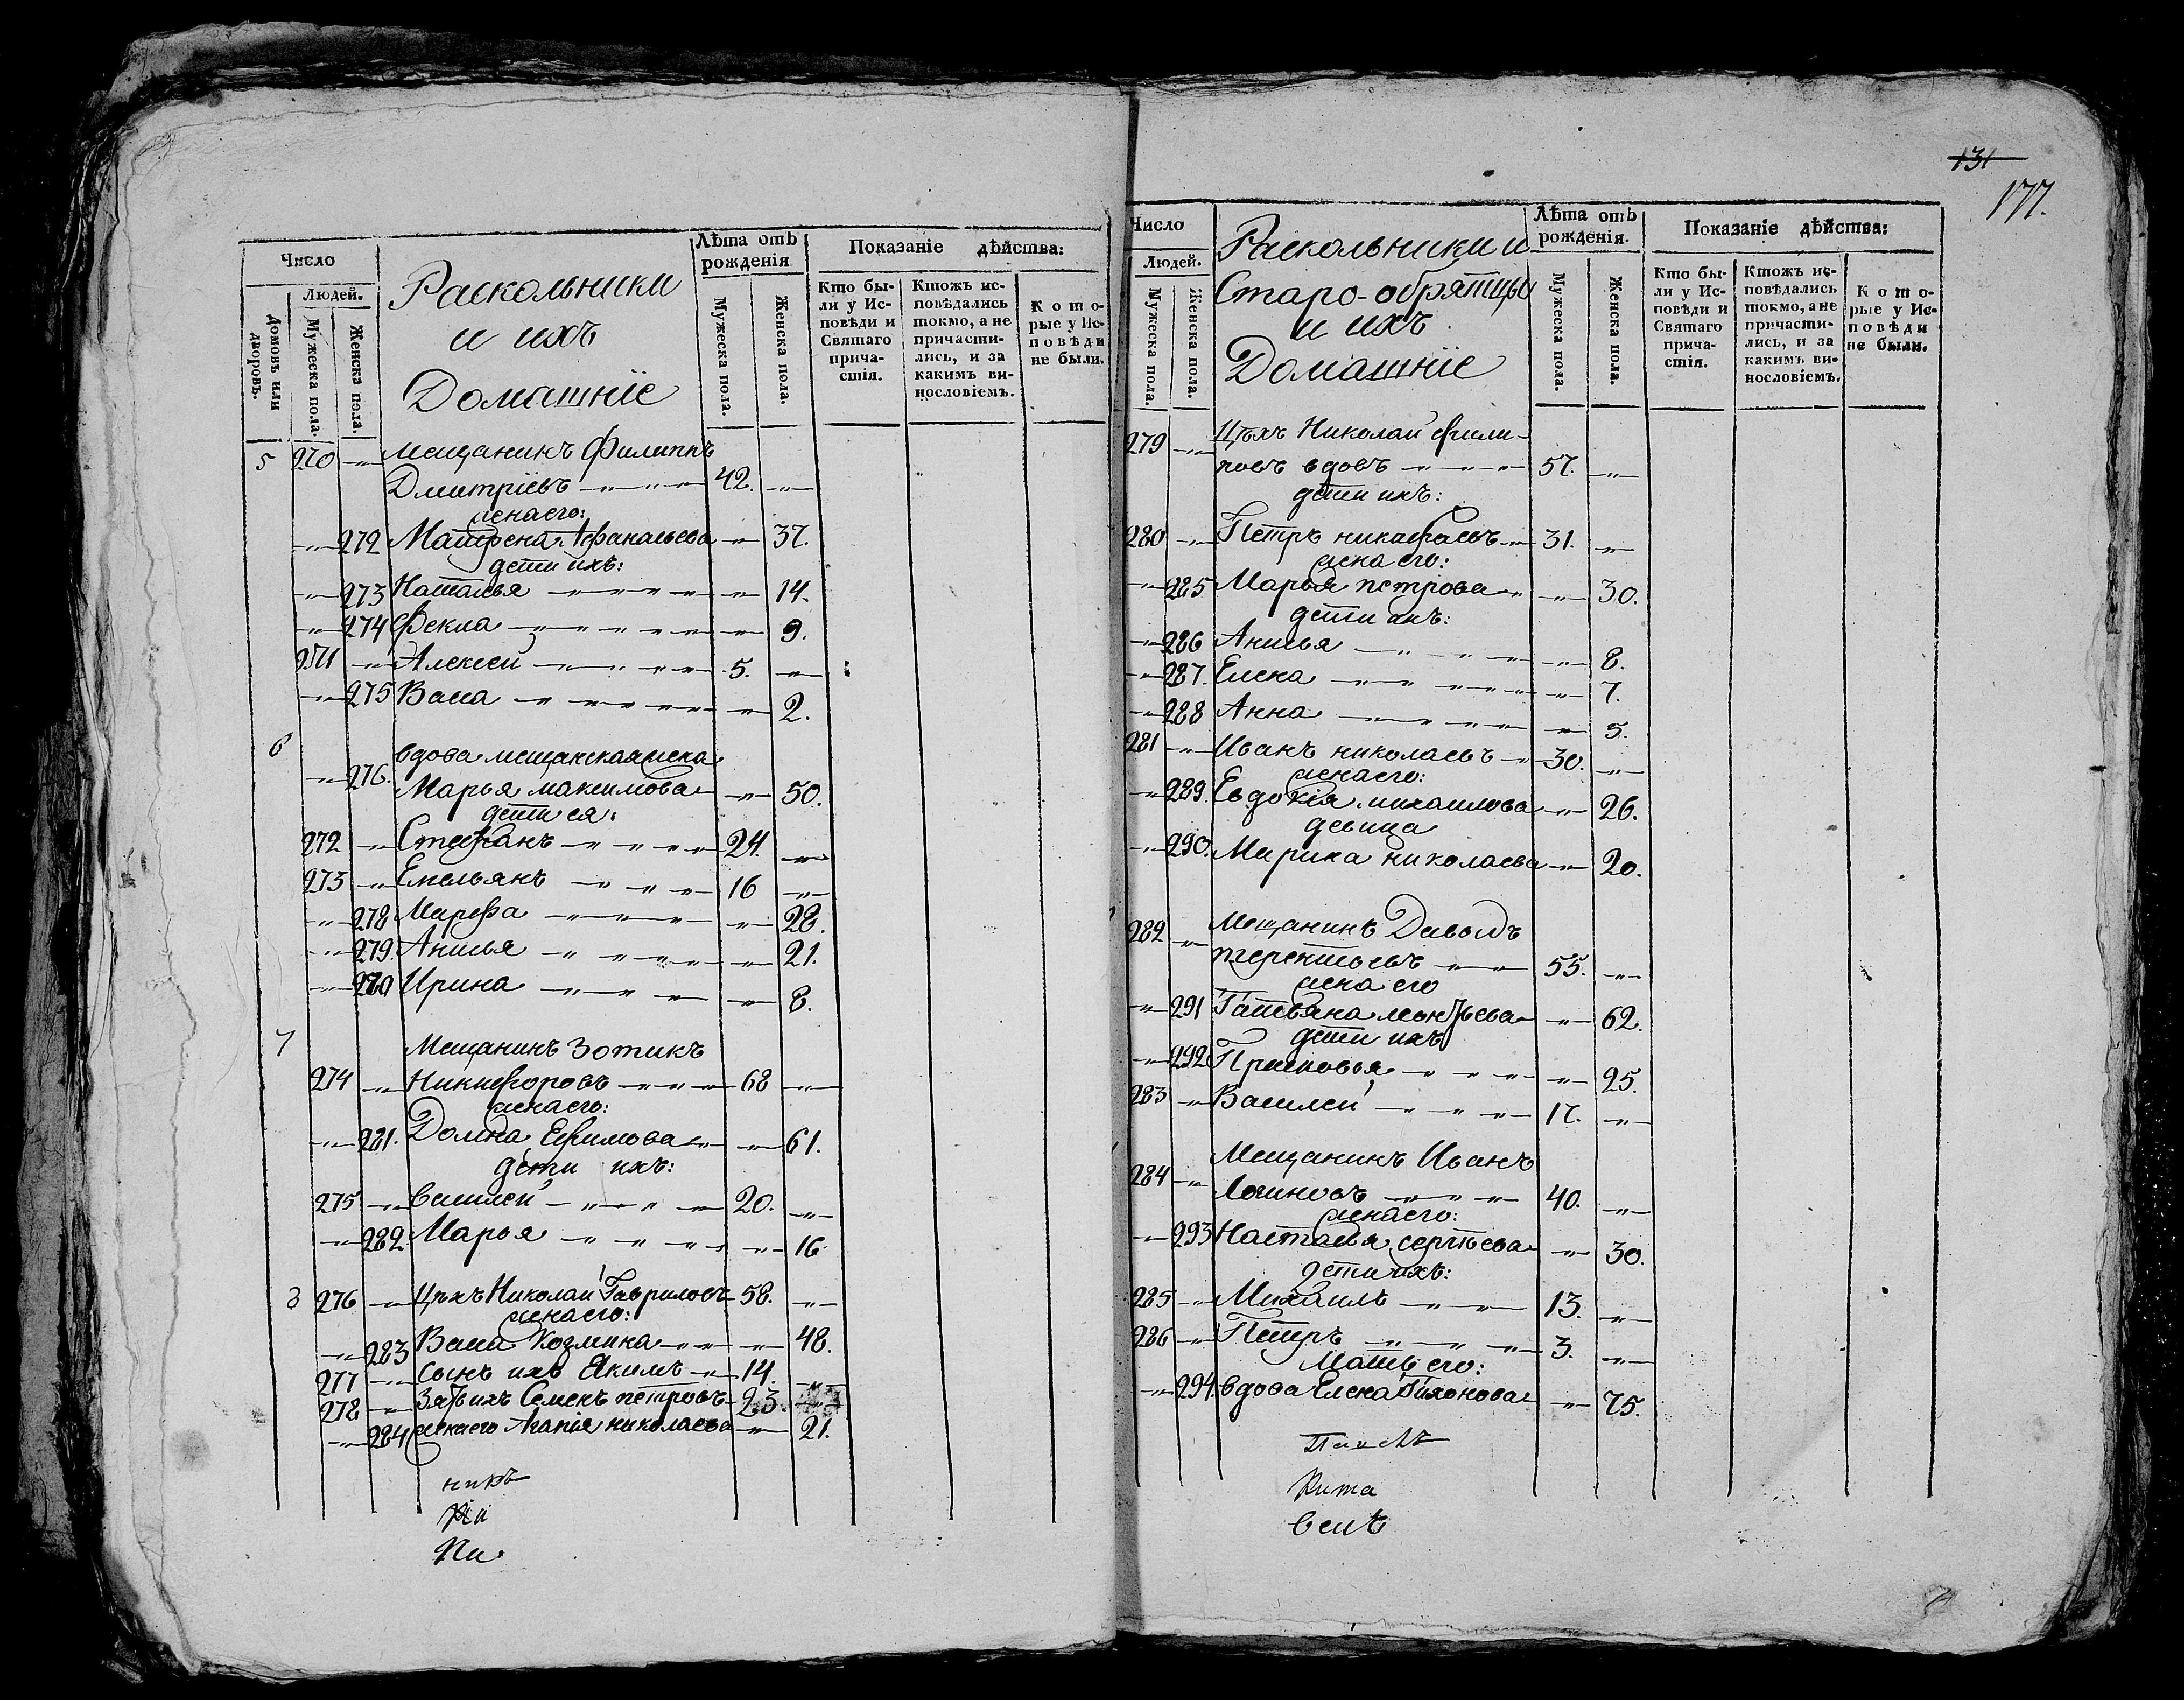 Число
Людей.
Домовъ или дворовъ.
Мужеска пола.
Женска пола.
Раскольники
и ихъ
Домашніе
Лѣта отъ
рожденія
Мужеска пола.
Женска пола.
Показаніе дѣйства:
Кто бы-
ли у Ис-
повѣди и
Святаго
прича-
стія.
Ктожъ ис-
повѣдались
токмо, а не
причасти-
лись, и за
какимъ ви-
нословіемъ.
Кото-
рые у Ис-
повѣди
не были.
5 270 —„— Мещанинъ Филиппъ
Дмитріевъ —„—„— 42. —„—
жена его:
—„— 272 Матрена Афанасьева —„— 37.
дети ихъ:
—„— 273 Наталья —„—„—„— 14.
—„— 274 Фекла —„—„—„— 9.
271 —„— Алексей —„—„— 5. —„—
—„— 275 Васа —„—„—„— 2.
6 вдова мещанская жена
—„— 276. Марья максимова —„— 50.
дети ея:
272 —„— Стефанъ —„—„— 24. —„—
273 —„— Емельянъ —„—„— 16 —„—
—„— 278 Марфа —„—„—„— 28.
—„— 279. Анисья —„—„—„— 21.
—„— 280 Ирина —„—„—„— 8.
7 Мещанинъ Зотикъ
274 —„— Никифоровъ —„—„— 68 —„—
жена его:
—„— 281. Домна Ефимова —„— 61.
дети ихъ:
275 —„— василей —„—„— 20. —„—
—„— 282. Марья —„—„—„— 16.
8 276 —„— Цѣхъ Николай Гавриловъ 58. —„—
жена его:
—„— 283 Васа Козмина —„—„— 48.
277 —„— сынъ ихъ Якимъ —„— 14. —„—
278 —„— Зять ихъ Семенъ петровъ 23.
—„— 284 жена его Агапія николаева —„— 21.
никъ
Ки
131
177.
Число
Людей.
Мужеска пола.
Женска пола.
Раскольники и
Старо-обрятцы
и ихъ
Домашніе
Лѣта отъ
рожденія.
Мужеска пола.
Женска пола.
Показаніе дѣйства:
Кто бы-
ли у Ис-
повѣди и
Святаго
прича-
стія.
Ктожъ ис-
повѣдались
токмо, а не
причасти-
лись, и за
какимъ ви-
нословіемъ.
Кото-
рые у Ис-
повѣди
не были.
279 —„— Цѣхъ Николай Фили-
повъ вдовъ —„—„— 57. —„—
дети ихъ:
280 —„— Петръ николаевъ —„— 31. —„—
жена его:
—„— 285 Марья петрова —„— 30.
дети ихъ:
—„— 286 Анисья —„—„—„— 8.
—„— 287. Елена —„—„—„— 7.
—„— 288 Анна —„—„—„— 5.
281 —„— Иванъ николаевъ —„— 30. —„—
жена его:
—„— 289. Евдокія михаилова —„— 26.
девица
—„— 290. Марина николаева —„— 20.
282 —„— Мещанинъ Давыдъ
терентьевъ —„— 55. —„—
жена его
—„— 291 Татьяна —„— 62.
дети ихъ
—„— 292 Прасковья —„—„—„— 25.
283 —„— Василей —„—„— 17. —„—
Мещанинъ Иванъ
284 —„— Логиновъ —„—„— 40. —„—
жена его:
—„— 293 Наталья сергѣева —„— 30.
дети ихъ:
285 —„— Михаилъ —„—„— 13. —„—
286 —„— Петръ —„—„— 3. —„—
Мать его:
—„— 294. вдова Елена Тихонова —„— 75.
Кита